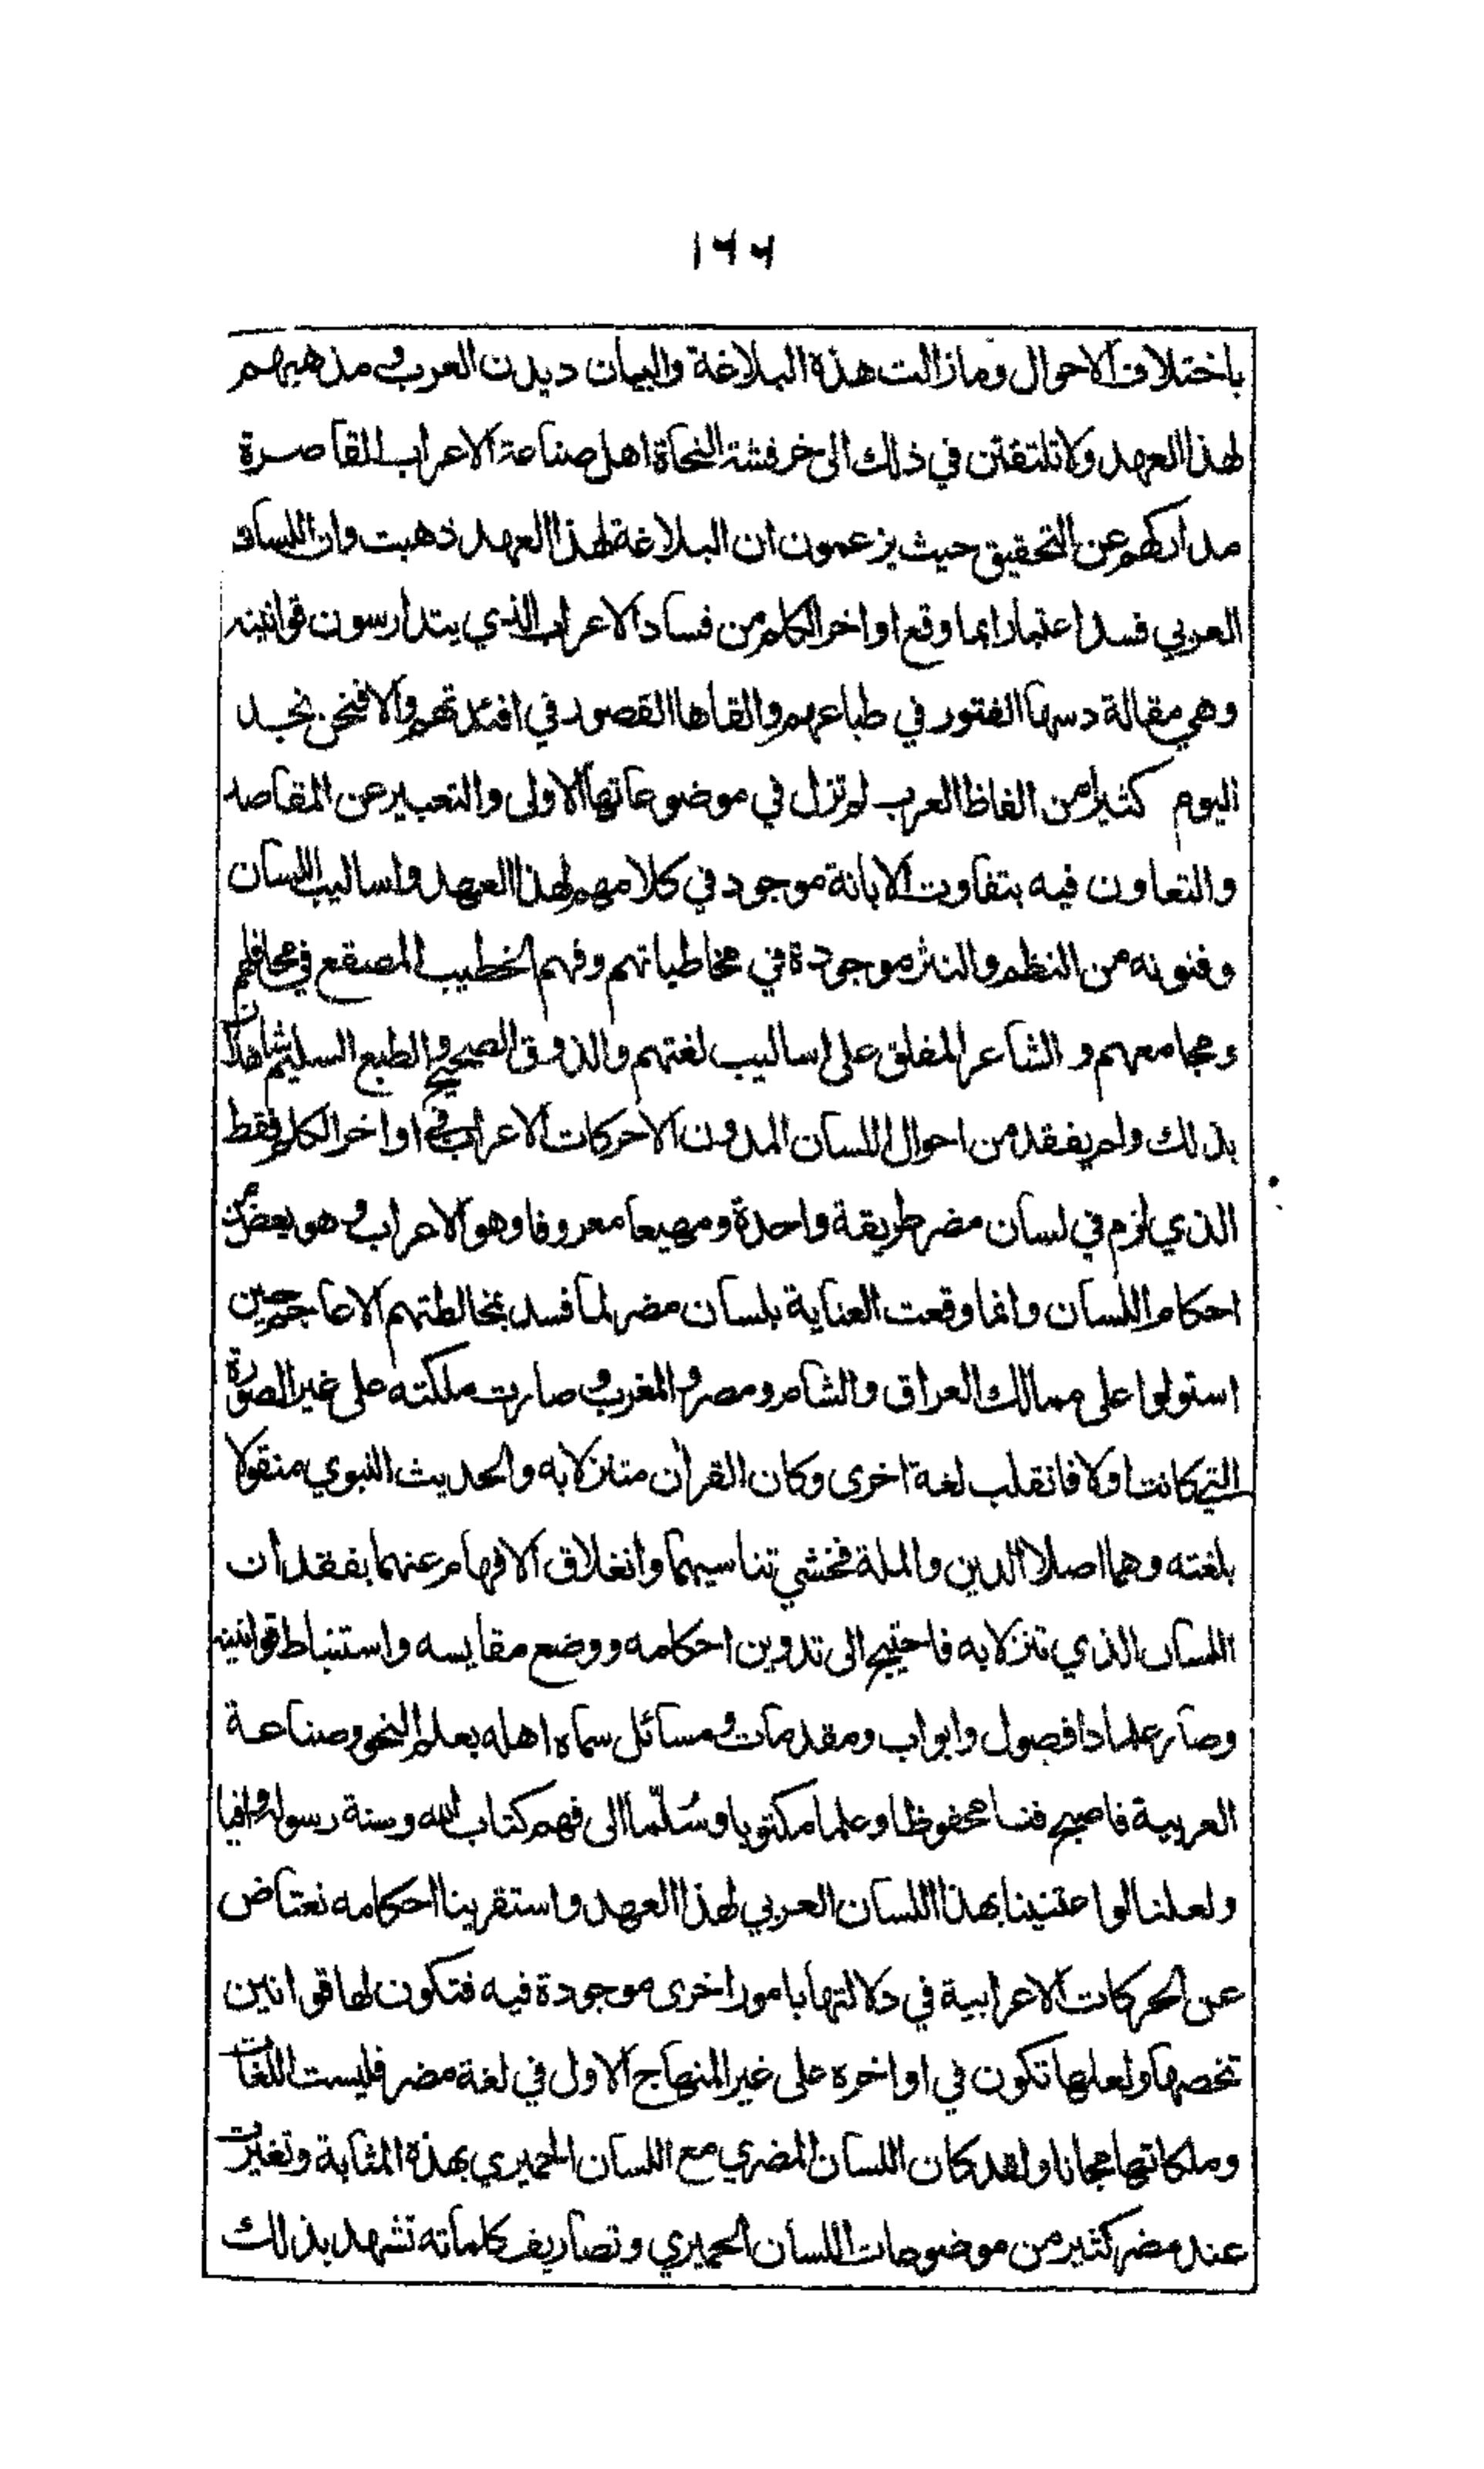 ١٤٤
باختلاف الاحوال وما زالت هذه البلاغة والبيان ديدن العرب و مذهبهم
لهذا العهد ولا تلتفتن في ذلك الى خرفشة النحاة اهل صناعة الاعراب القاصرة
مداركهم عن التحقيق حيث يزعمون ان البلاغة لهذا العهد ذهبت وان اللسان
العربي فسد اعتبارا بما وقع اواخر الكلم من فساد الاعراب الذي يتدارسون قوانينه
وهي مقالة دسها الفتور في طباعهم والقاها القصور في افئدتهم والا فنحن نجد
اليوم كثيرا من الفاظ العرب لم تزل في موضوعاتها الاولى والتعبير عن المقاصد
والتعاون فيه بتفاوت الابانة موجود في كلامهم لهذا العهد واساليب اللسان
وفنونه من النظم والنثر موجودة في مخاطباتهم وفهم الخطيب المصقع في محافلهم
ومجامعهم و الشاعر المفلق على اساليب لغتهم والذوق الصحيح والطبع السليم شاهدان
بذلك ولم يفقد من احوال اللسان المدون الا حركات الاعراب في اواخر الكلم فقط
الذي لزم في لسان مضر طريقة واحدة ومهيعا معروفا وهو الاعراب و هو بعض من
احكام اللسان وانما وقعت العناية بلسان مضر لما فسد بمخالطتهم الاعاجم حين
استولوا على ممالك العراق والشام ومصر والمغرب و صارت ملكته على غير الصورة
التي كانت اولا فانقلب لغة اخرى وكان القرآن متنزلا به والحديث النبوي منقولا
بلغته وهما اصلا الدين والملة فخشي تناسيهما وانغلاق الافهام عنهما بفقدان
اللسان الذي تنزلا به فاحتيج الى تدوين احكامه ووضع مقايسه واستنباط قوانينه
وصار علما ذا فصول وابواب ومقدمات و مسائل سماه اهله بعلم النحو وصناعة
العربية فاصبح فنا محفوظا وعلما مكتوبا وسُلّما الى فهم كتاب الله وسنة رسوله وافيا
ولعلنا لو اعتنينا بهذا اللسان العربي لهذا العهد واستقرينا احكامه نعتاض
عن الحركات الاعرابية في دلالتها بامور اخرى موجودة فيه فتكون لها قوانين
تخصها ولعلها تكون في اواخره على غير المنهاج الاول في لغة مضر فليست اللغات
وملكاتها مجانا ولقد كان اللسان المضري مع اللسان الحميري بهذه المثابة وتغيرت
عند مضر كثير من موضوعات اللسان الحميري وتصاريف كلماته تشهد بذلك